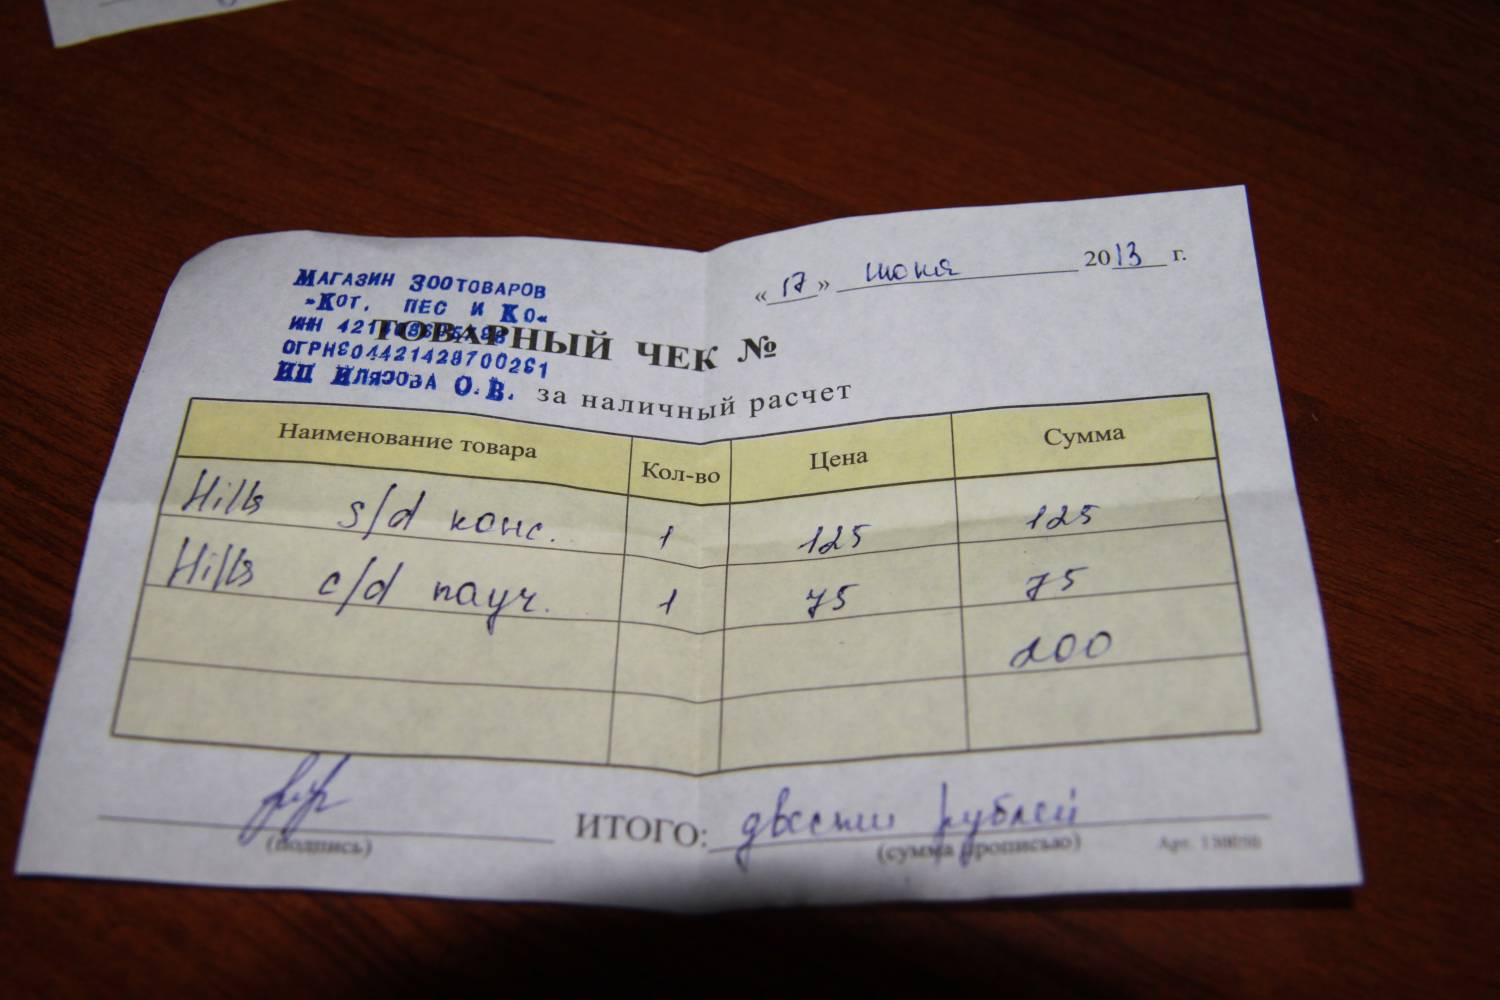 « 17 » июня 2013 г.
МАГАЗИН ЗООТОВАРОВ
"КОТ, ПЕС И КО"
ИНН
ТОВАРНЫЙ ЧЕК №
ОГРН304421428700261
ИП ИЛЯСОВА О.В.
за наличный расчет
Наименование товара Кол-во Цена Сумма
Hills s/d конс. 1 125 125
Hills c/d пауч. 1 75 75
200
ИТОГО: двести рублей
(подпись) (сумма прописью) Арт.